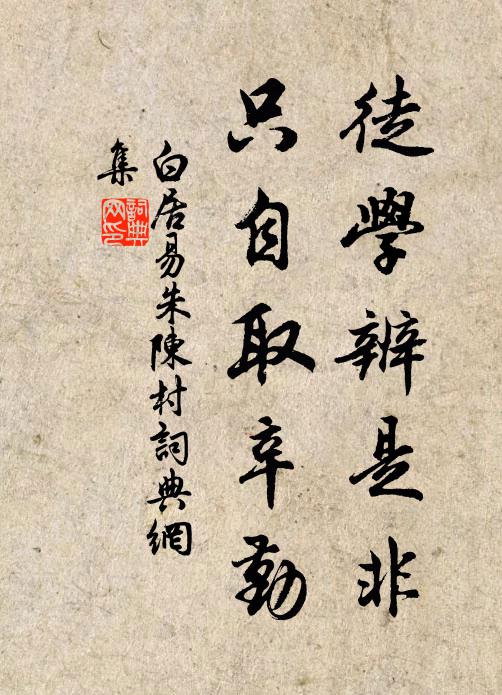 徒學辨是非
只自取辛勤
白居易朱陳村詞典網
集
詞典
网印